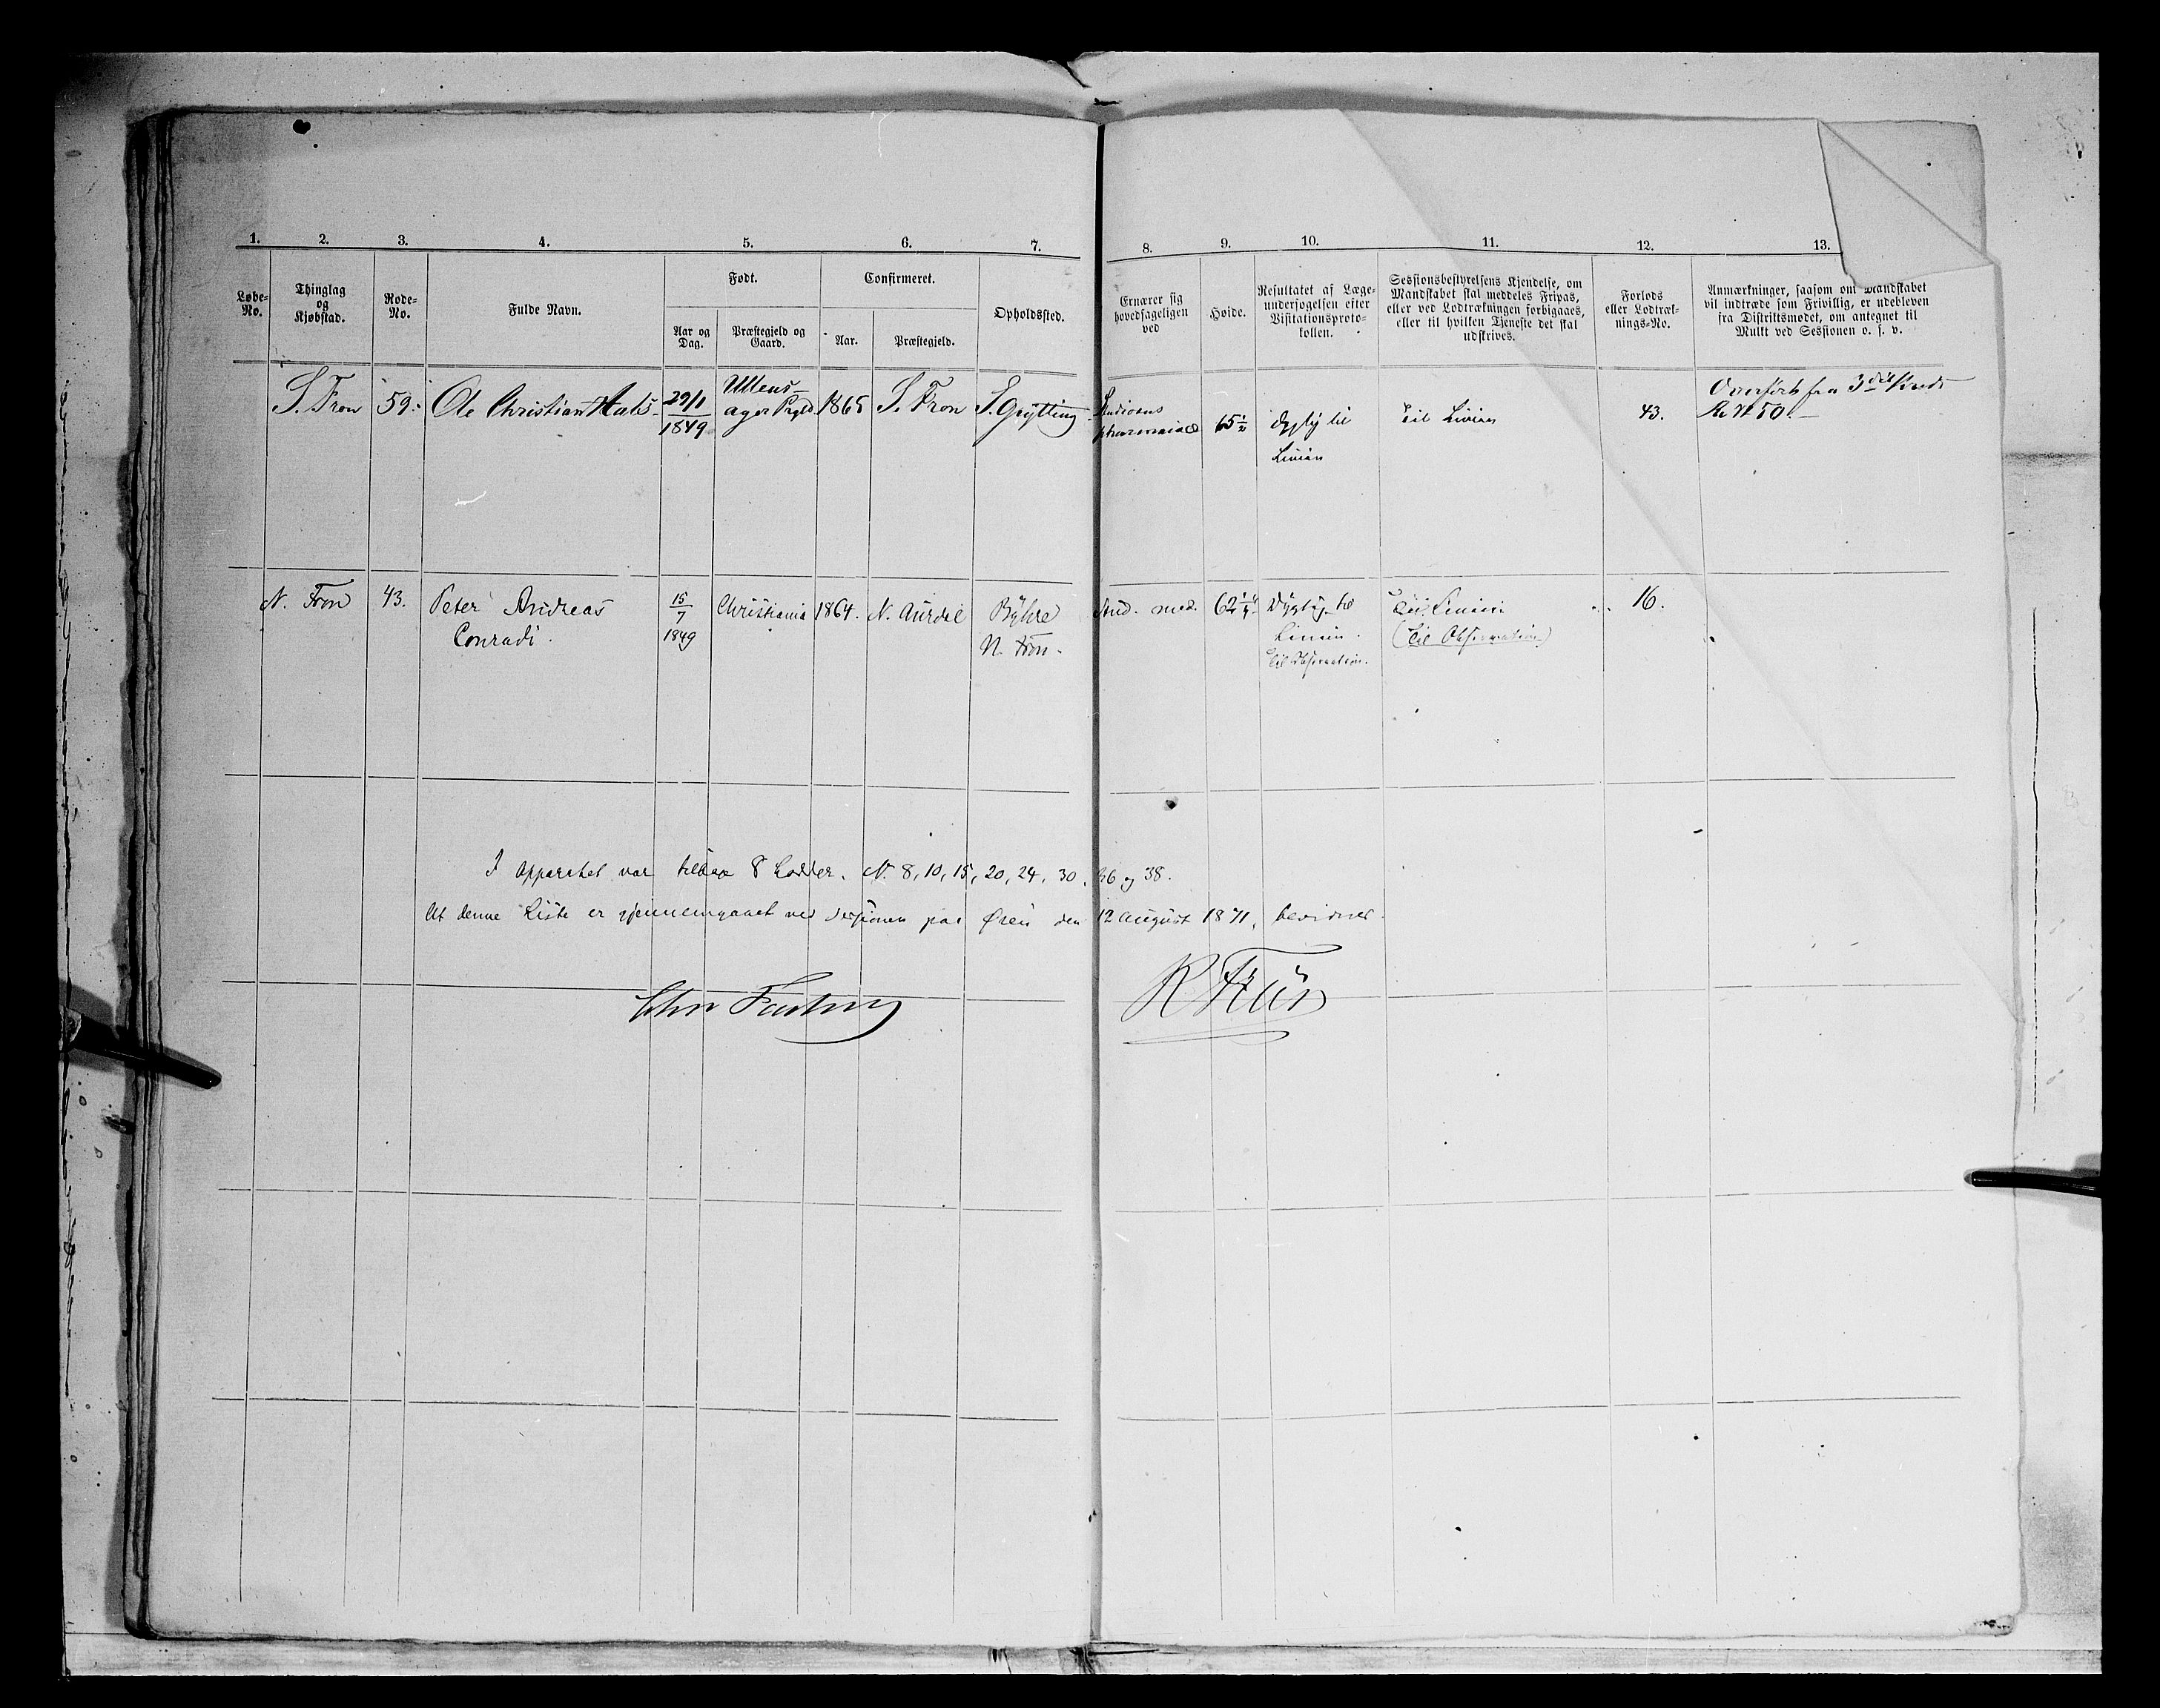 1. 2. 3. 4. 5. 6. 7. 8. 9. 10. 11. 12. 13.
Løbe-No.
Thinglag og Kjøbstad.
Rode-No.
Fulde Navn.
Født.
Aar og Dag.
Præstegjeld og Gaard.
Confirmeret.
Aar.
Præstegjeld.
Opholdssted.
Ernærer sig hovedsageligen ved
Høide.
Resultatet af Læge-
undersøgelsen efter
Visitationsproto-
kollen.
Sessionsbestyrelsens Kjendelse, om
Mandskabet skal meddeles Fripas,
eller ved Lodtrækningen forbigaaes,
eller til hvilken Tjeneste det skal
udskrives.
Forlods
eller Lodtræk-
nings-No.
Anmærkninger, saasom om Mandskabet
vil indtræde som Frivillig, er udebleven
fra Distriktsmødet, om antegnet til
Mulkt ved Sessionen o. s. v.
S. Fron 59. Ole Christian Hals 29/1 1849 Ullens-ager Prgld 1865 S. Fron S. Grytting Studiosus pharmaciæ 65 1/2 dygtig til Linien Til Linien 43. Overført fra 3die Kreds
N. Fron 43. Peter Andreas Conradi. 15/7 1849 Christiania 1864. N. Aurdal Byhre N. Fron. stud. med. 62 1/4 Dygtig til Linien. Til Observation. Til Linien (Til Observation) 16.
I Apparatet var tilbage 8 Lodder. N. 8, 10, 15, 20, 24, 30, 36 og 38.
At denne Liste er gjennemgaaet ved Sessionen paa Øren den 12 August 1871, bevidnes.